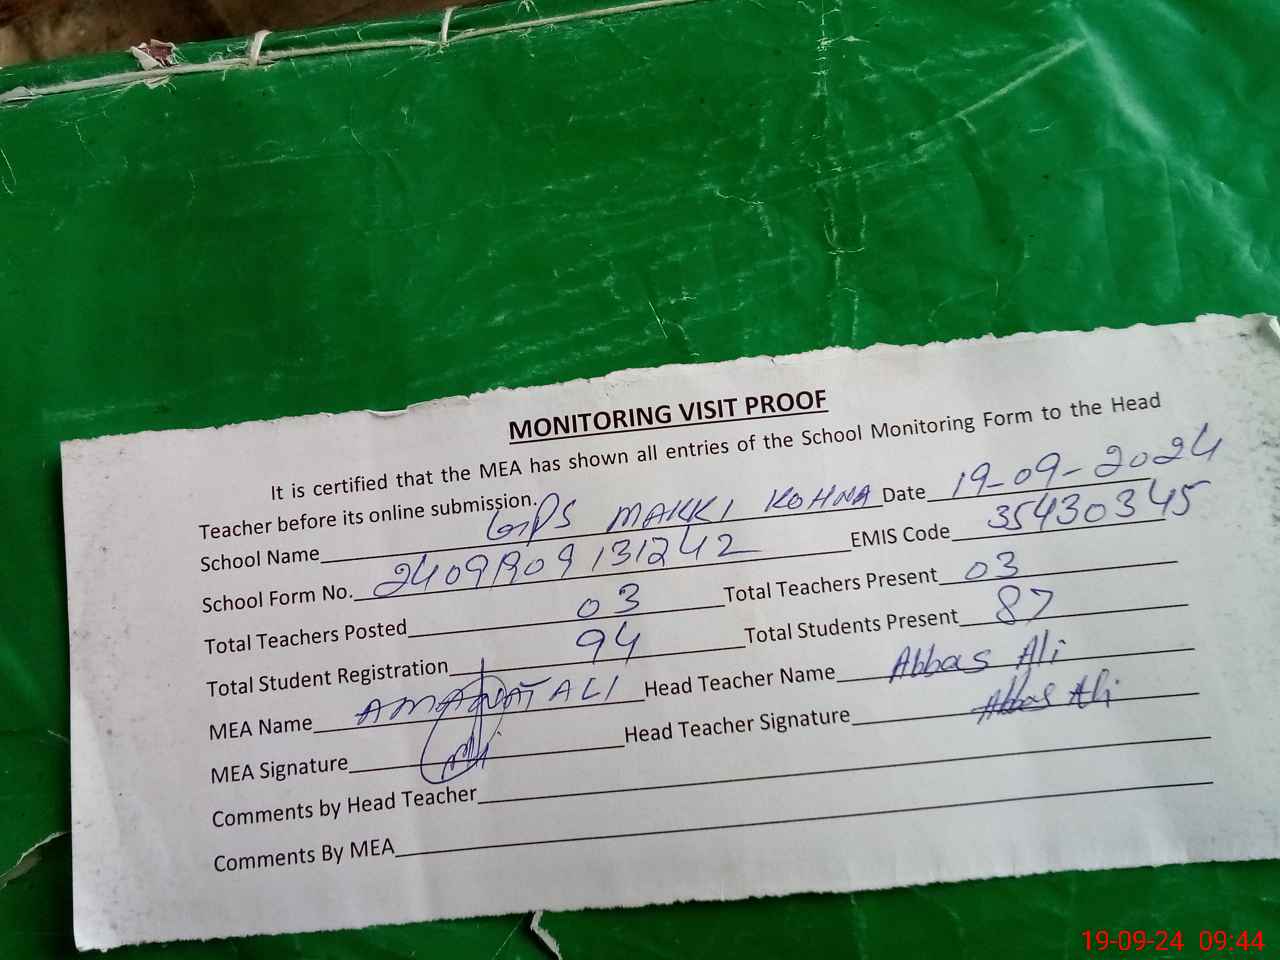 MONITORING VISIT PROOF
It is certified that the MEA has shown all entries of the School Monitoring Form to the Head
Teacher before its online submission.
School Name GPS MAKKI KOHNA Date 19-09-2024
School Form No. 24091909131242 EMIS Code 35430345
Total Teachers Posted 03 Total Teachers Present 03
Total Student Registration 94 Total Students Present 87
MEA Name AMANAT ALI Head Teacher Name Abbas Ali
MEA Signature Head Teacher Signature Abbas Ali
Comments by Head Teacher
Comments By MEA
19-09-24 09:44